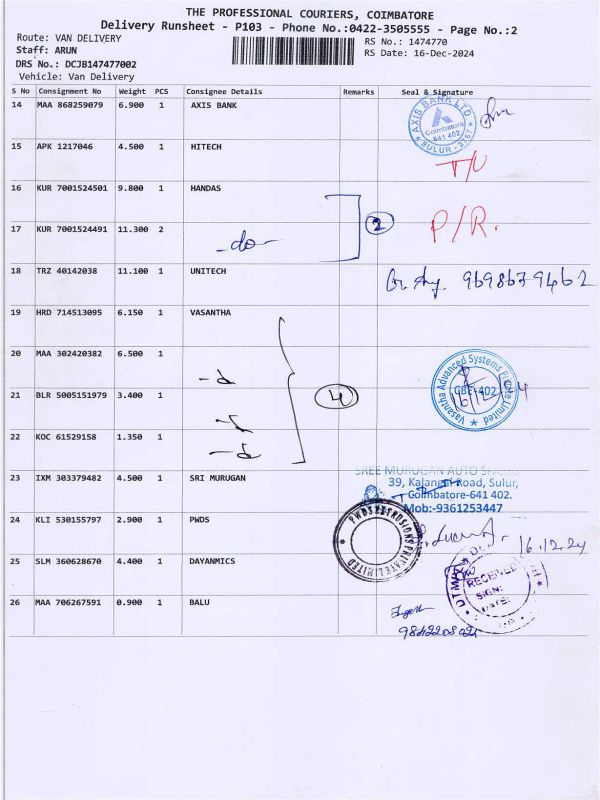 THE PROFESSIONAL COURIERS, COIMBATORE
Delivery Runsheet - P103 - Phone No.:0422-3505555 - Page No.:2
Route: VAN DELIVERY
RS No.: 1474770
Staff: ARUN
RS Date: 16-Dec-2024
DRS No.: DCJB147477002
Vehicle: Van Delivery
S No Consignment No Weight PCS Consignee Details Remarks Seal & Signature
14 MAA 868259079 6.900 1 AXIS BANK
AXIS BANK LTD
Coimbatore
641 402
SULUR - 3167
15 APK 1217046 4.500 1 HITECH
T/U
16 KUR 7001524501 9.800 1 HANDAS
17 KUR 7001524491 11.300 2 -do-
2
P/R.
18 TRZ 40142038 11.100 1 UNITECH
19 HRD 714513095 6.150 1 VASANTHA
20 MAA 302420382 6.500 1
21 BLR 5005151979 3.400 1
4
Vasantha Advanced Systems Private Limited
CBE-402
22 KOC 61529158 1.350 1
23 IXM 303379482 4.500 1 SRI MURUGAN
SREE MURUGAN AUTO SPARES
39, Kalangal Road, Sulur,
Coimbatore-641 402.
Mob:-9361253447
24 KLI 530155797 2.900 1 PWDS
16.12.24
25 SLM 360628670 4.400 1 DAYANMICS
RECEIVED
SIGN:
DATE:
26 MAA 706267591 0.900 1 BALU